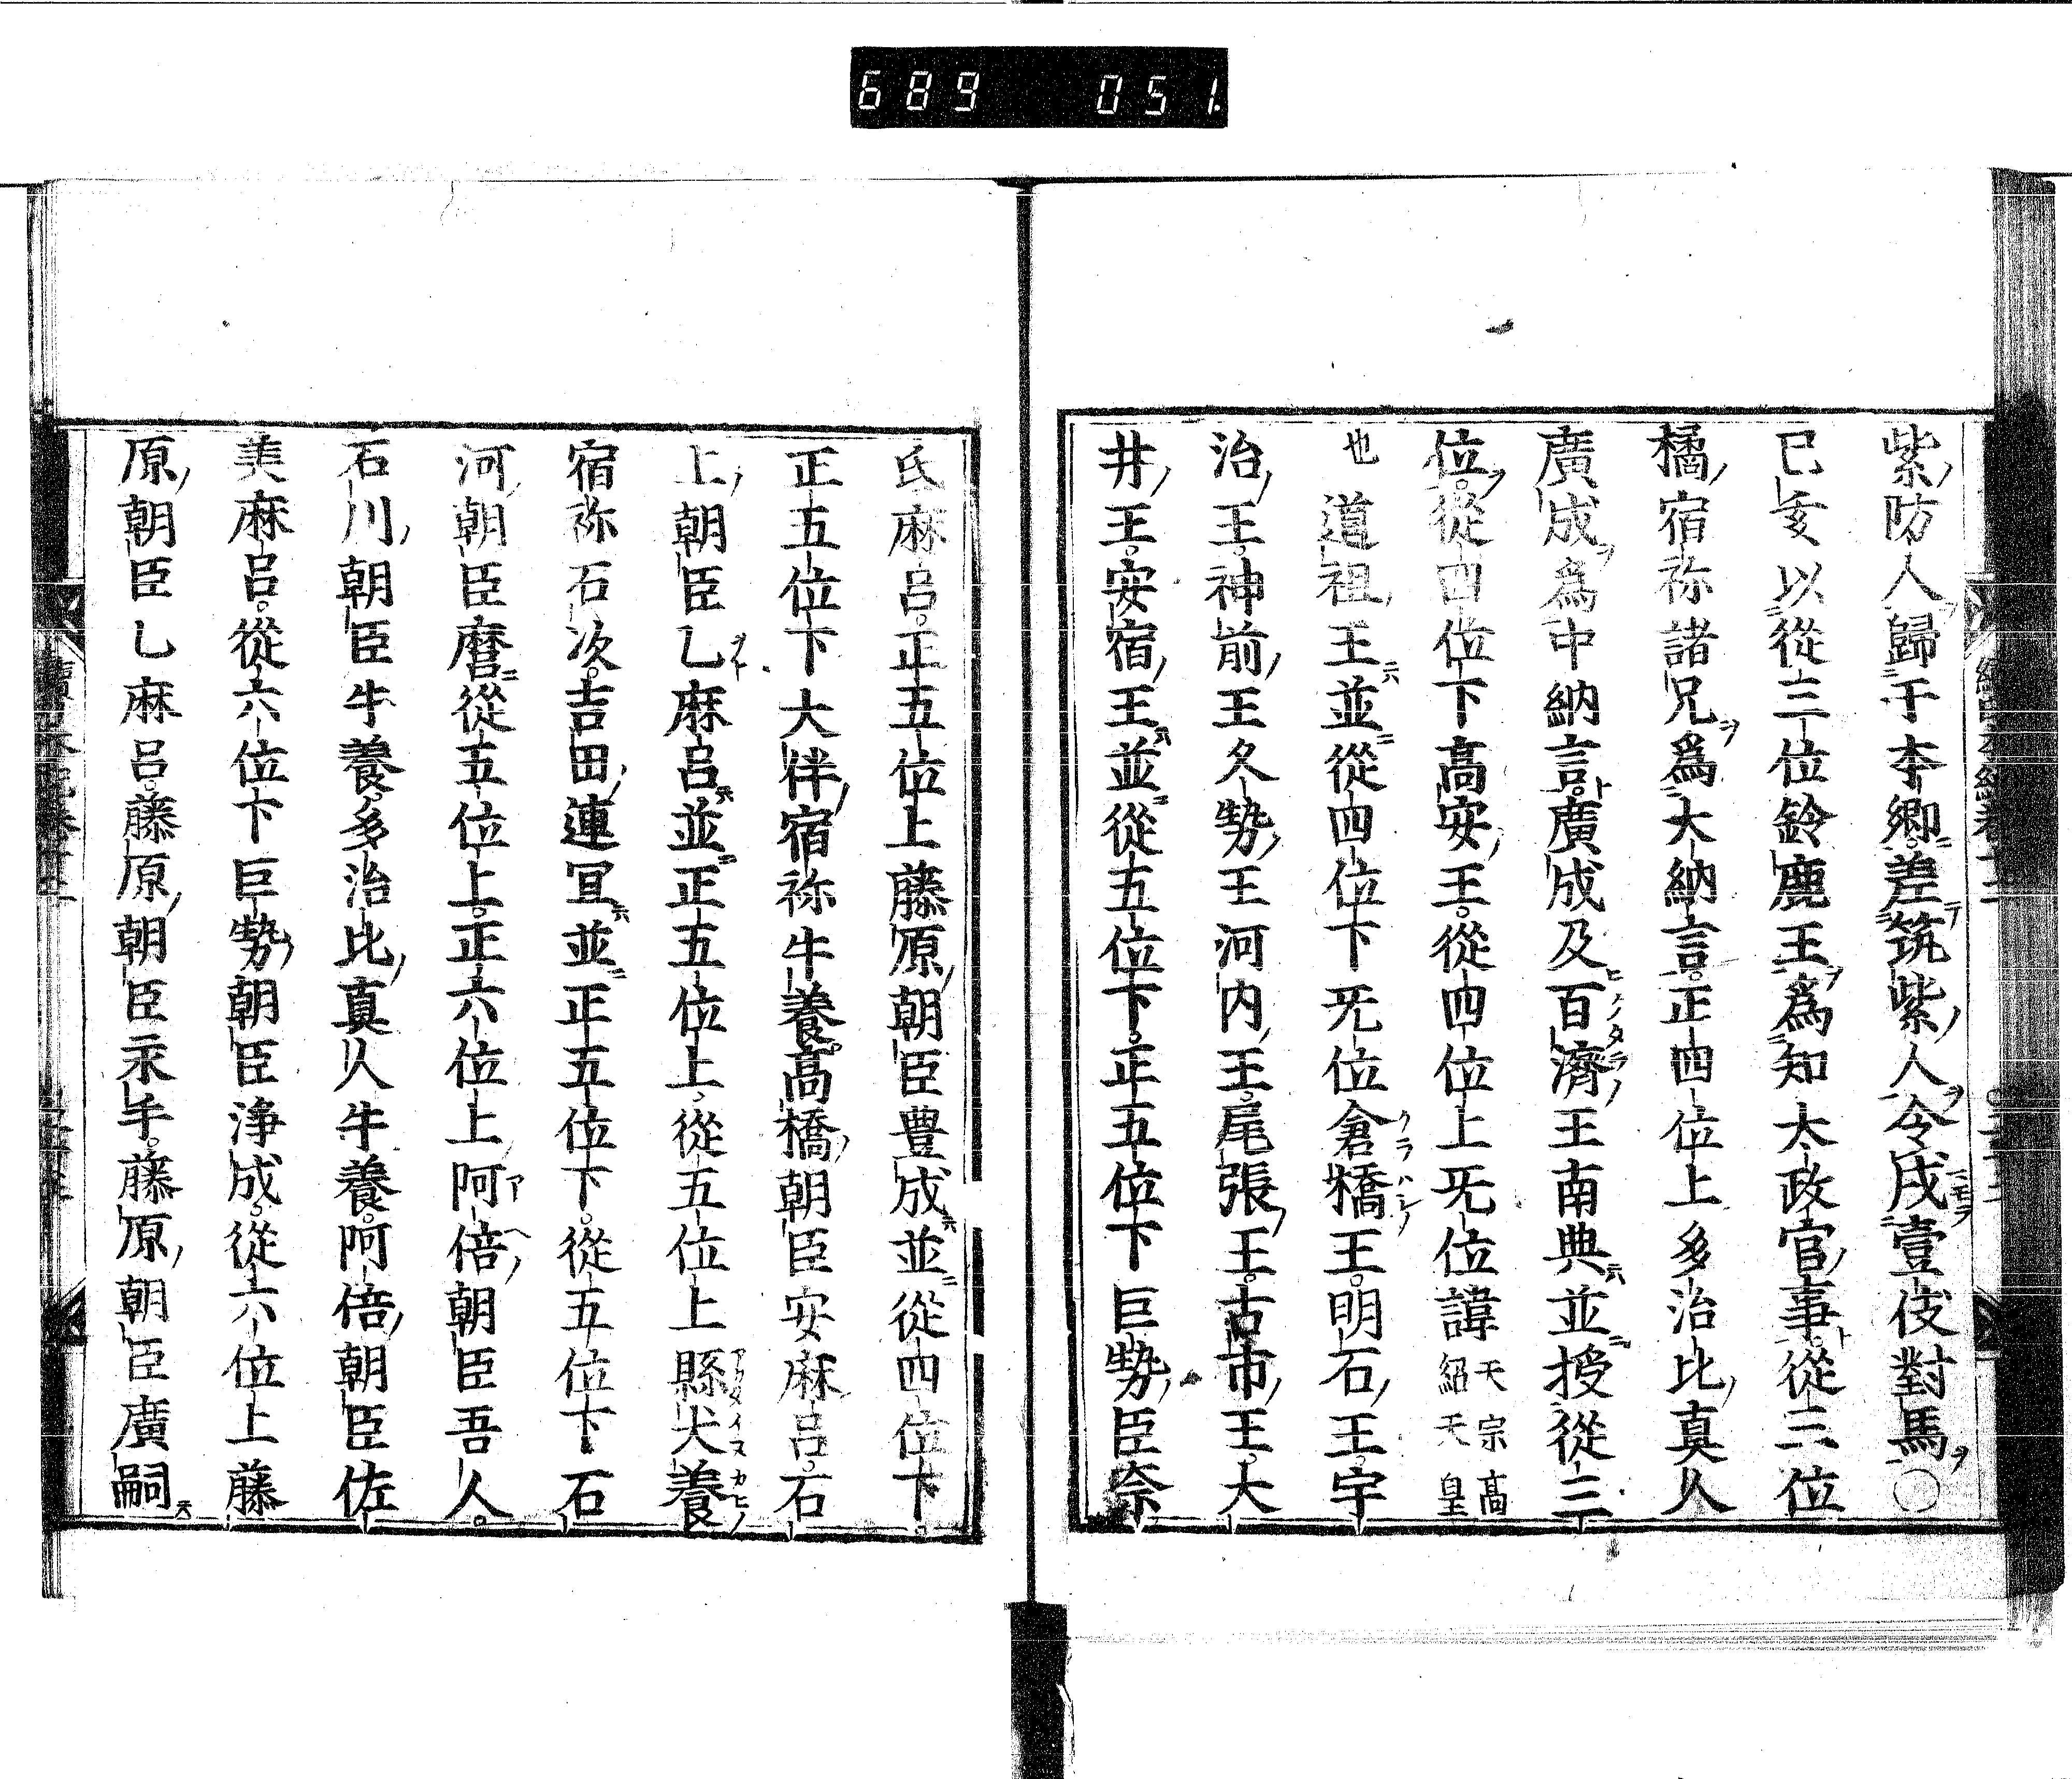 689 051
紫防人歸于本鄉差筑紫人令戍壹伎對馬〇
已亥以從三位鈴鹿王爲知太政官事從三位
橘宿祢諸兄爲大納言正四位上多治比真人
廣成爲中納言廣成及百濟王南典並授從三
位從四位下高安王從四位上旡位諱天宗高紹天皇
也道祖王並從四位下旡位倉橋王明石王宇
治王神前王久勢王河内王尾張王古市王大
井王安宿王並從五位下正五位下巨勢臣奈
氏麻呂正五位上藤原朝臣豊成並從四位下
正五位下大伴宿祢牛養高橋朝臣安麻呂石
上朝臣乙麻呂並正五位上從五位上縣犬養
宿祢石次吉田連冝並正五位下從五位下石
河朝臣麿從五位上正六位上阿倍朝臣吾人
石川朝臣牛養多治比真人牛養阿倍朝臣佐
美麻呂從六位下巨勢朝臣浄成從六位上藤
原朝臣乙麻呂藤原朝臣永手藤原朝臣廣嗣